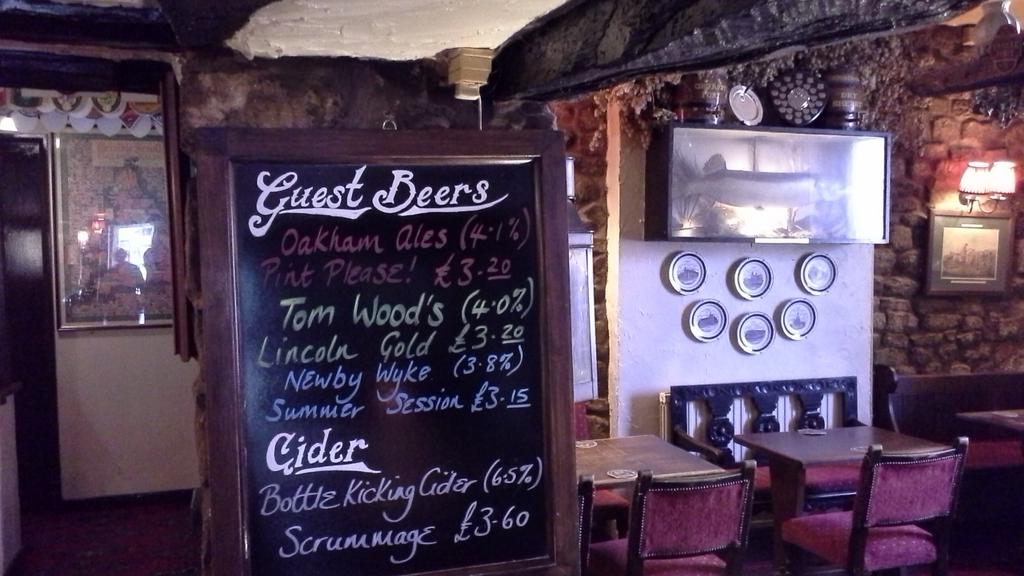 Guest Beers
Oakham Ales (4.1%)
Pint Please! £3.20
Tom Wood's (4.0%)
Lincoln Gold £3.20
Newby Wyke (3.8%)
Summer Session £3.15
Cider
Bottle Kicking Cider (6.5%)
Scrummage £3.60